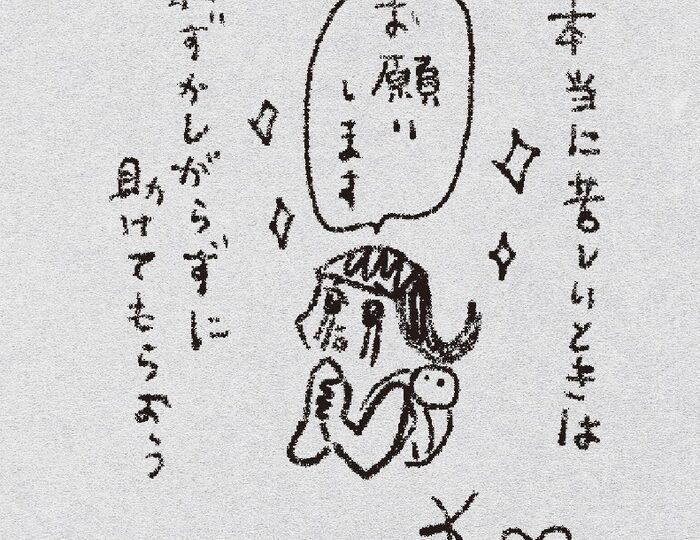 本当に苦しいときは
お願い
します
ずかしがらずに
助けてもらおう